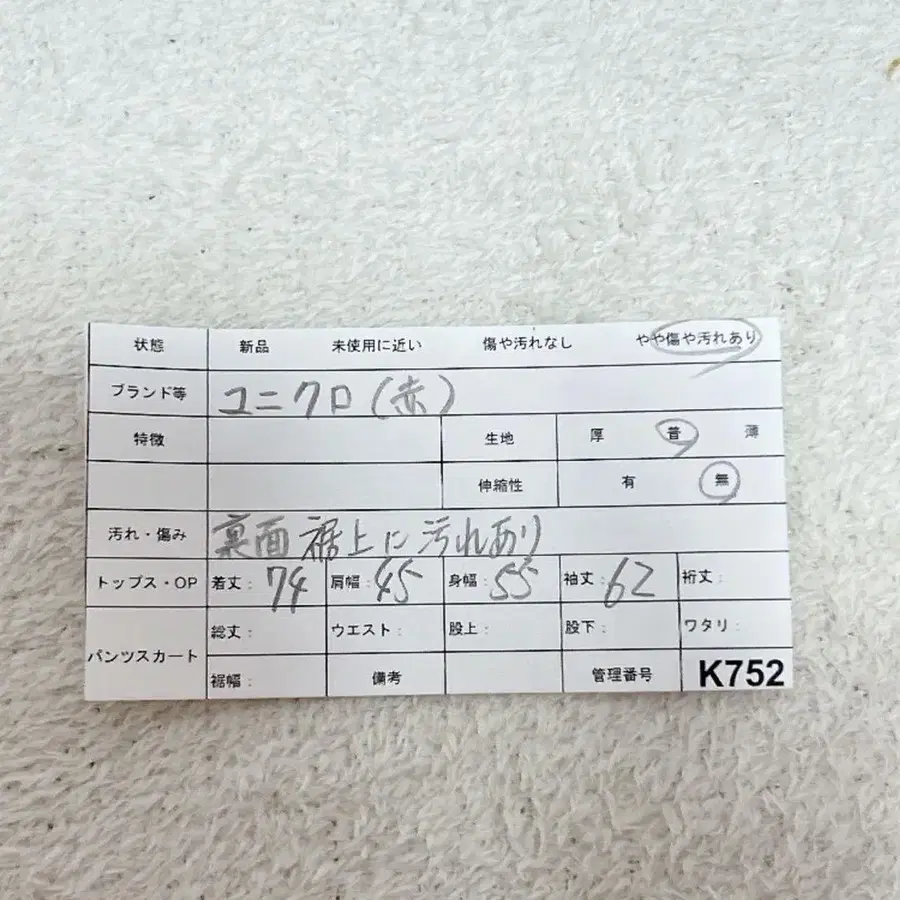 状態 新品 未使用に近い 傷や汚れなし やや傷や汚れあり
ブランド等 ユニクロ(赤)
特徴 生地 厚 普 薄
伸縮性 有 無
汚れ・傷み 裏面 裾上に汚れあり
トップス・OP 着丈: 74 肩幅: 45 身幅: 55 袖丈: 62 裄丈:
パンツスカート 総丈: ウエスト: 股上: 股下: ワタリ:
裾幅: 備考 管理番号 K752